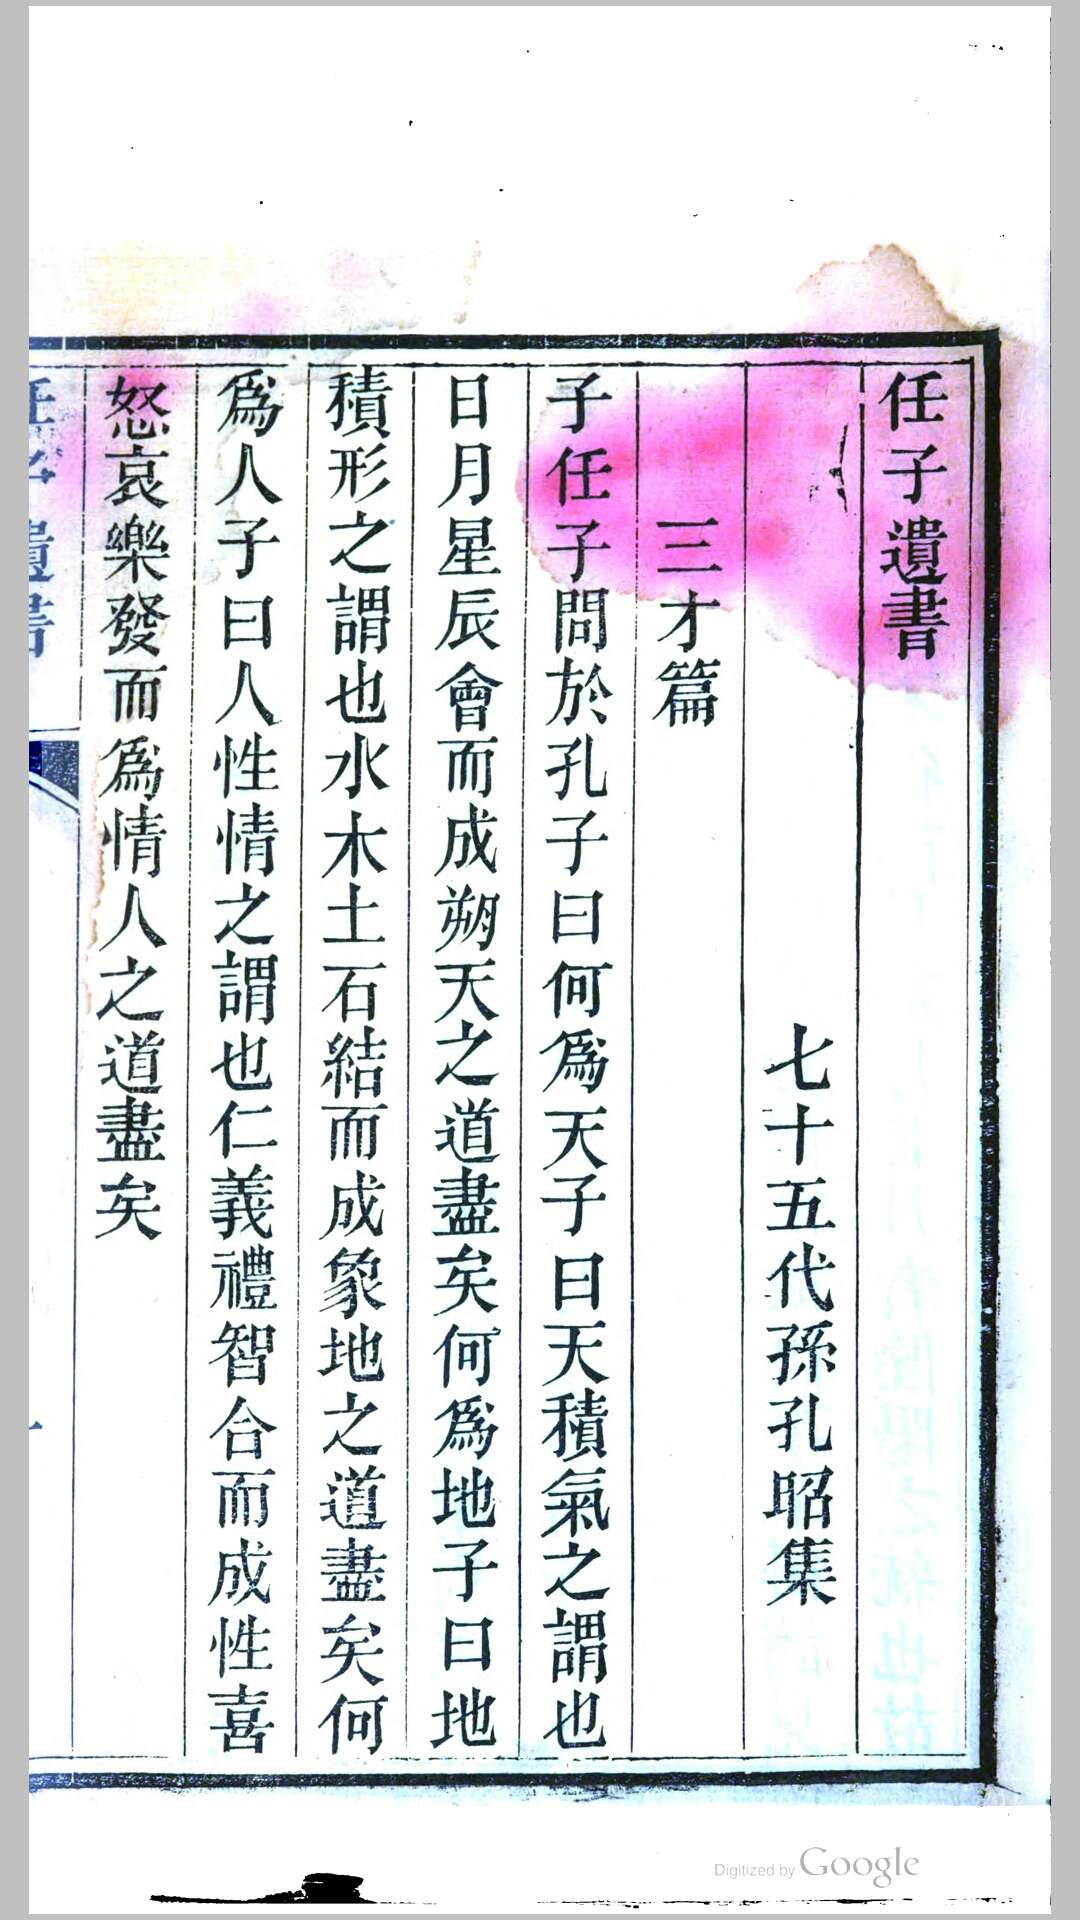 任子遺書
七十五代孫孔昭集
三才篇
子任子問於孔子曰何爲天子曰天積氣之謂也
日月星辰會而成朔天之道盡矣何爲地子曰地
積形之謂也水木土石結而成象地之道盡矣何
爲人子曰人性情之謂也仁義禮智合而成性喜
怒哀樂發而爲情人之道盡矣
任子遺書
Digitized by Google